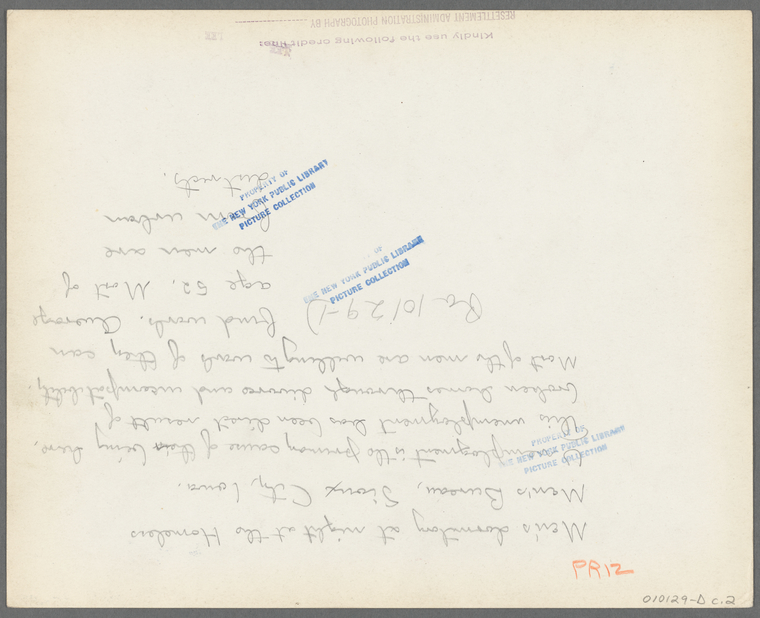 Men's dormitory at night at the Homeless
Men's Bureau, Sioux City, Iowa.
Unemployment is the primary cause of their being here.
This unemployment has been direct result of
broken homes through divorce and incompatibility.
Most of the men are willing to work if they can
find work. Average
age 52. Most of
the men are
from urban
districts.
Ra 10129-D
Kindly use the following credit line:
RESETTLEMENT ADMINISTRATION PHOTOGRAPH BY
PROPERTY OF
THE NEW YORK PUBLIC LIBRARY
PICTURE COLLECTION
OF
THE NEW YORK PUBLIC LIBRARY
PICTURE COLLECTION
PROPERTY OF
THE NEW YORK PUBLIC LIBRARY
PICTURE COLLECTION
PR12
010129-D c.2